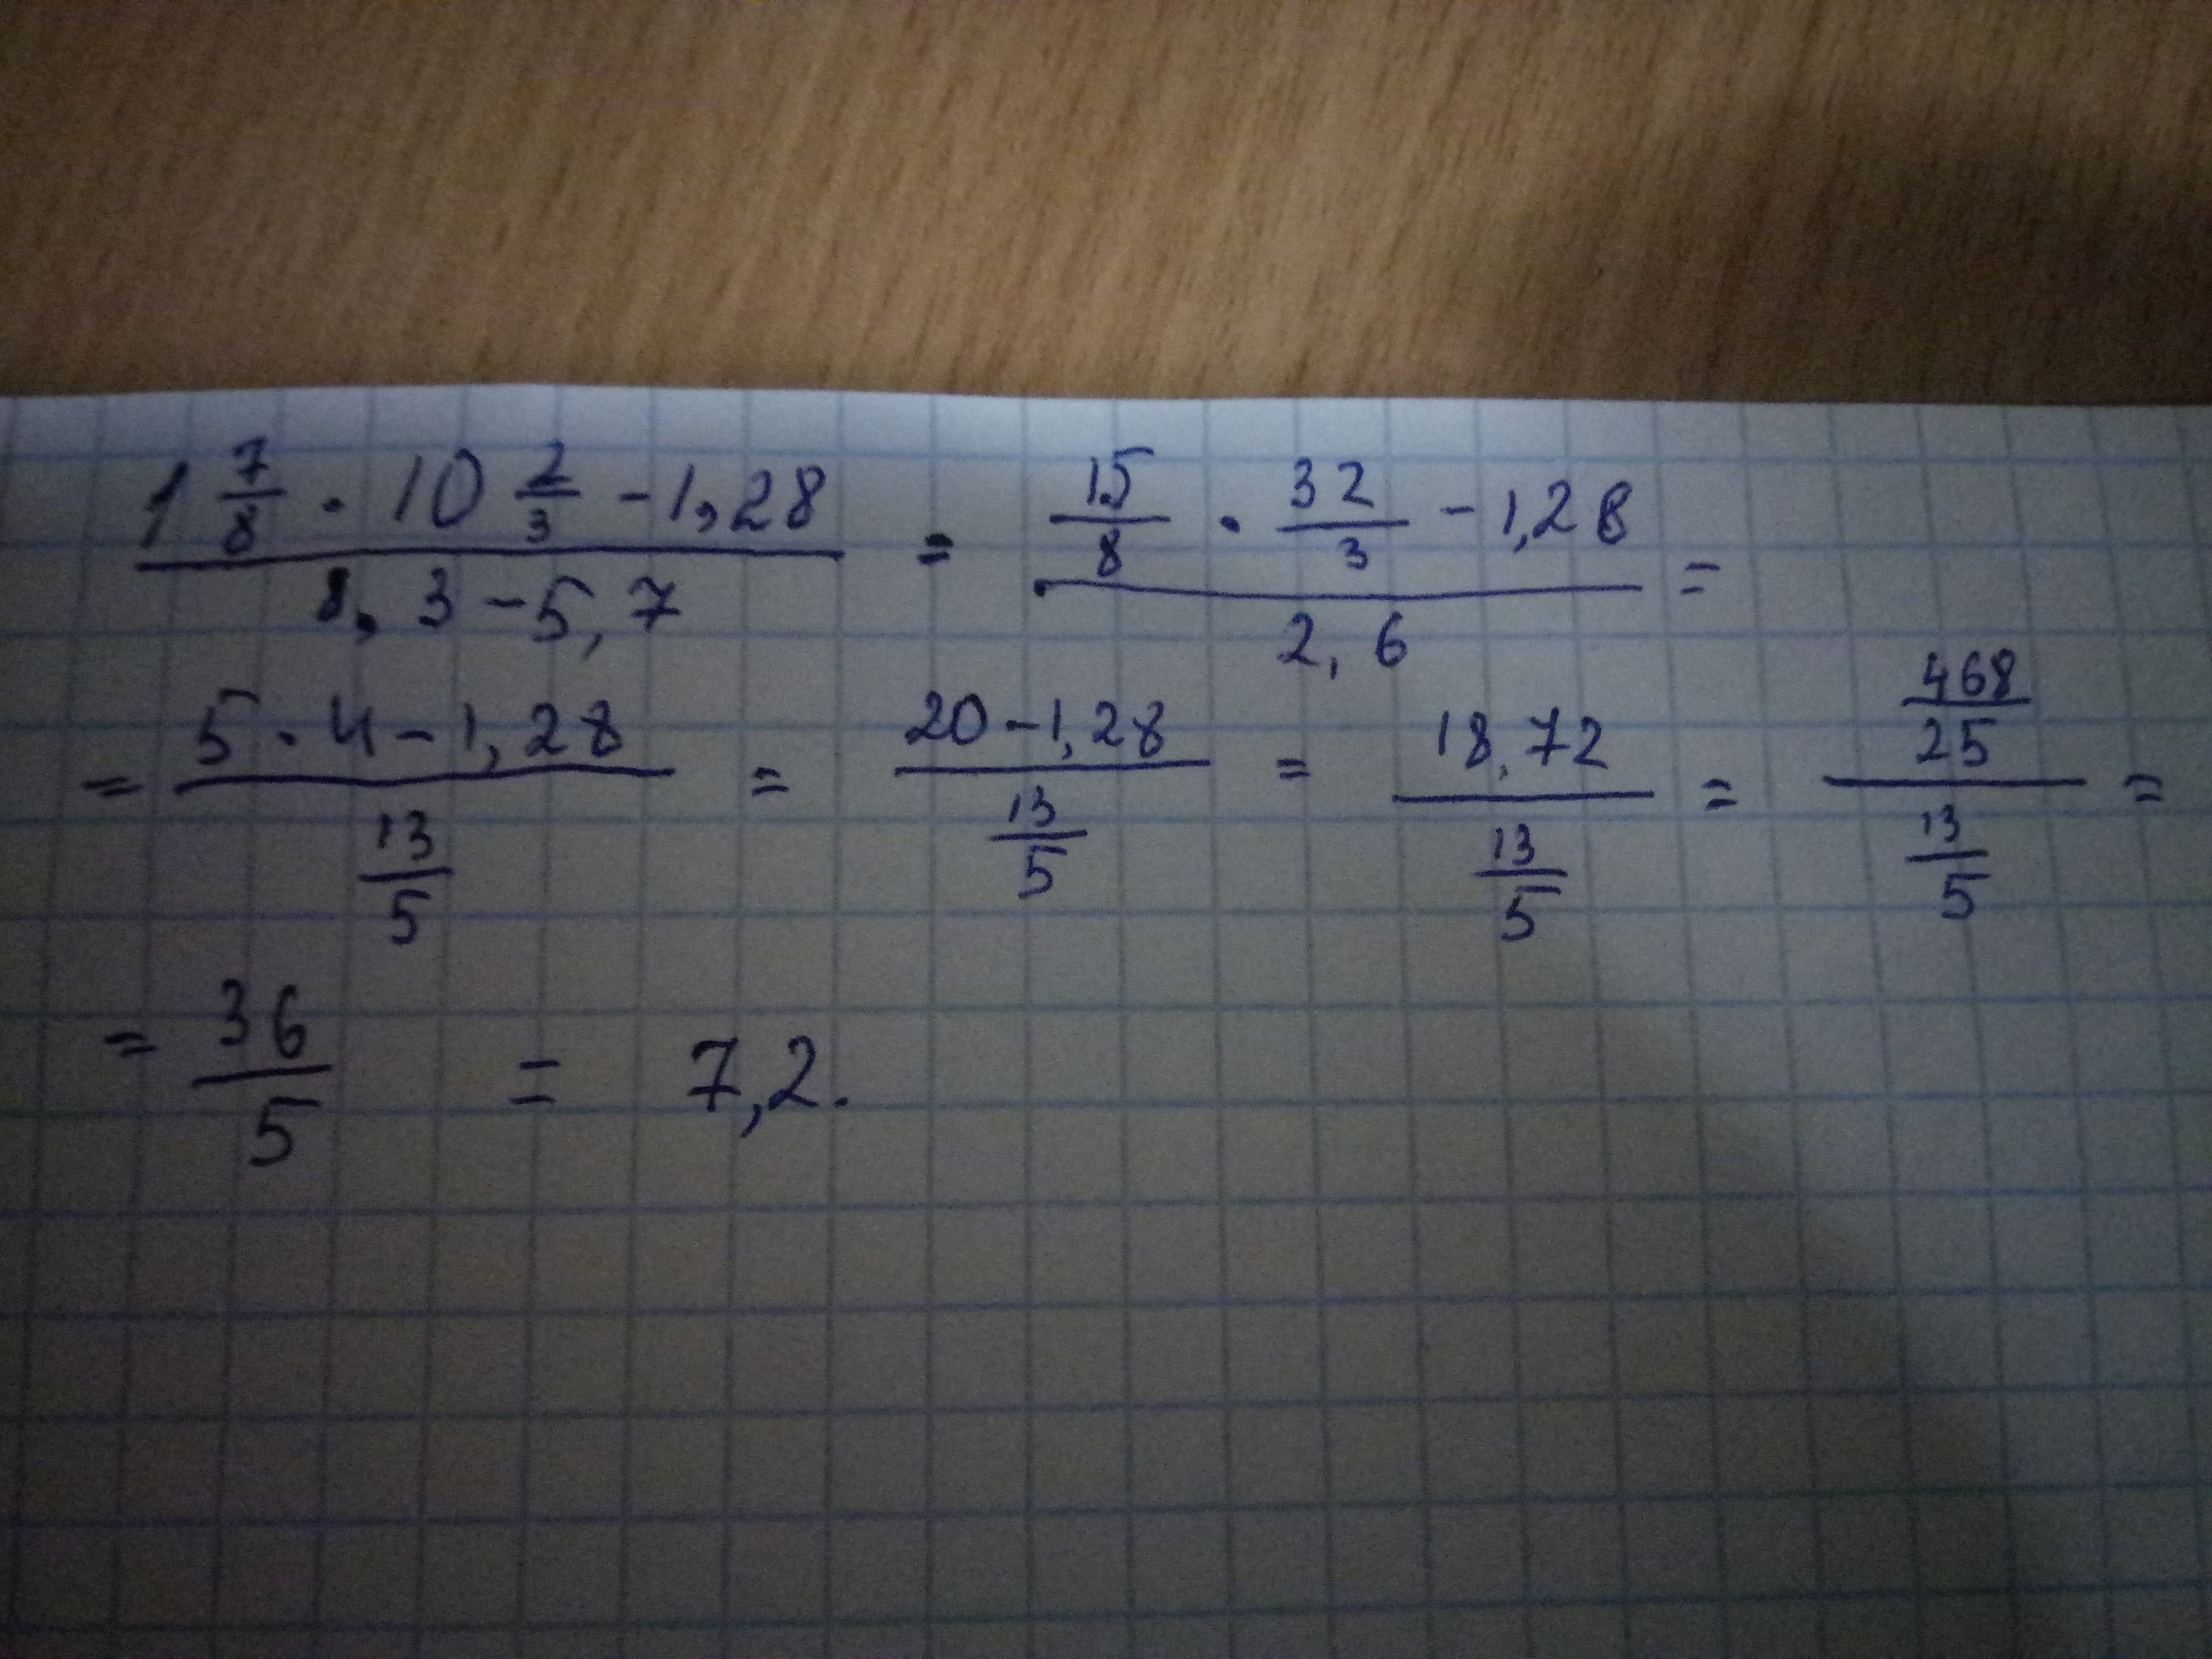 1 7/8 · 10 2/3 - 1,28 / 8,3 - 5,7 = 15/8 · 32/3 - 1,28 / 2,6 =
= 5 · 4 - 1,28 / 13/5 = 20 - 1,28 / 13/5 = 18,72 / 13/5 = 468/25 / 13/5 =
= 36/5 = 7,2.